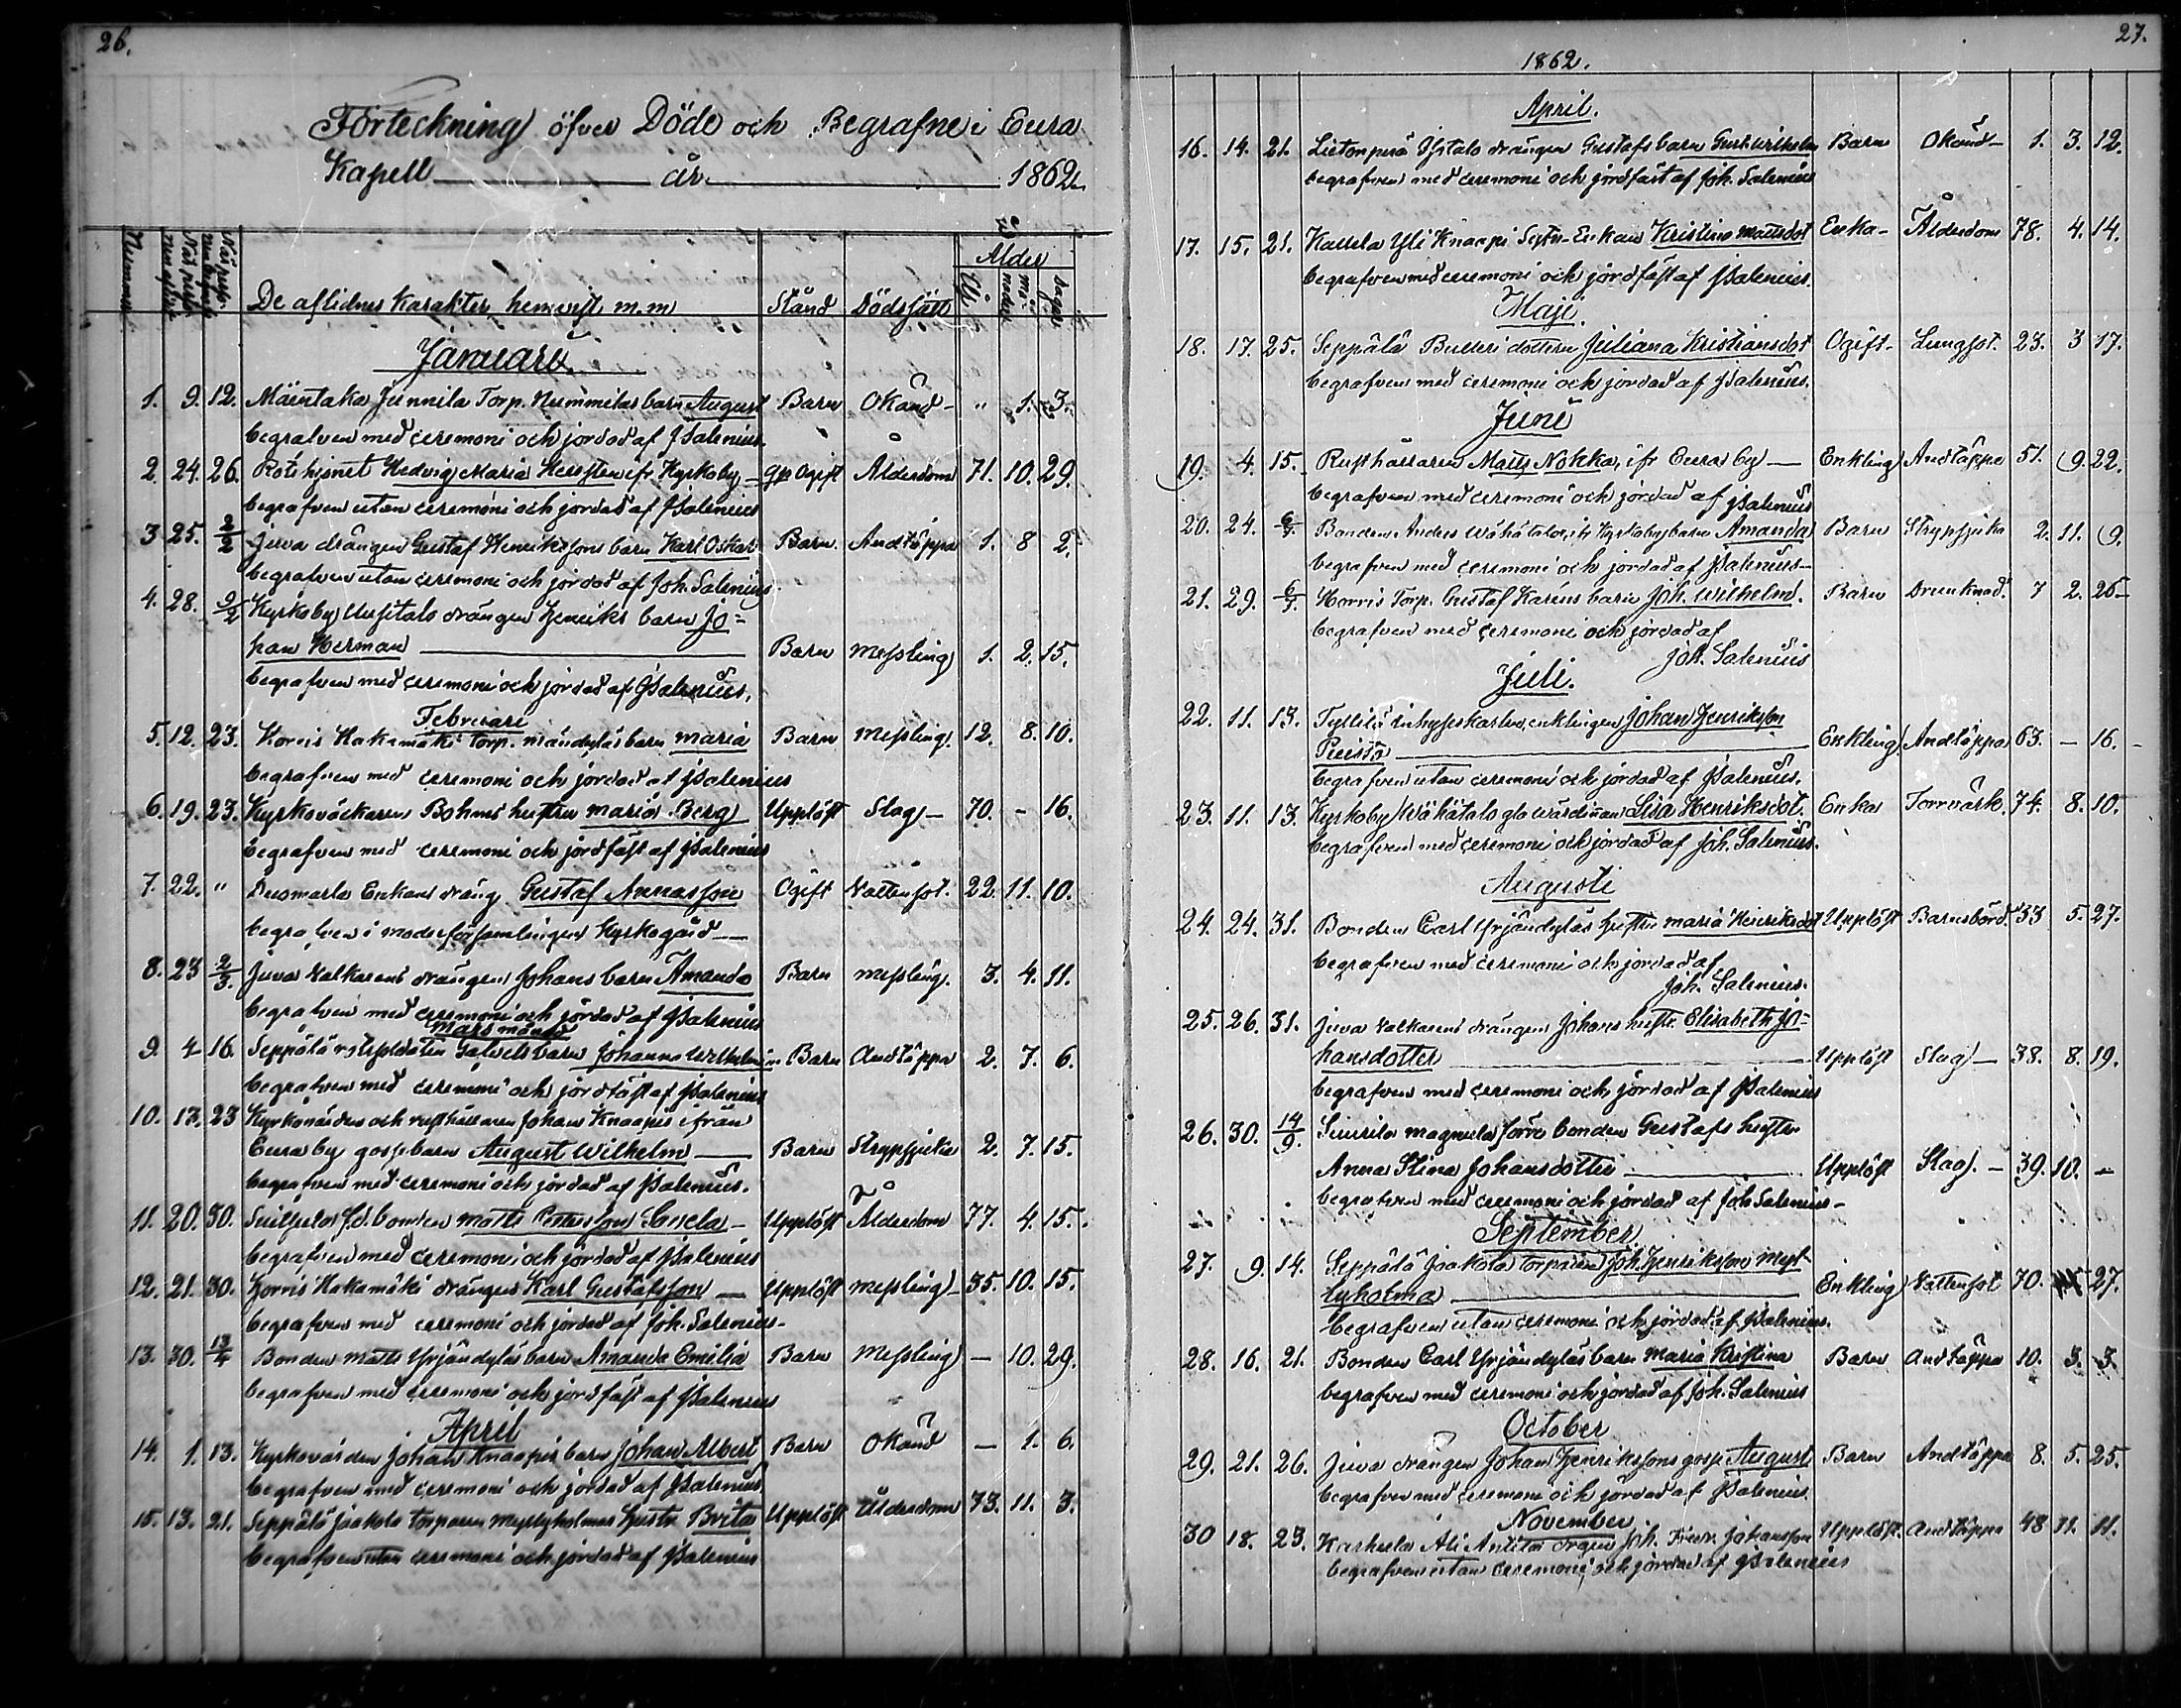 26.
Förteckning öfver Döde och Begrafne i Eura
Kapell år 1862.
Nummer
De aflidnes Karakter, hemvist m.m Stånd Dödssätt Ålder
År Månader Dagar
Januari
1. 9. 12. Mäntaka Junnila Torp. Nummilas barn August Barn Okänd - " 1. 3.
begrafven med ceremoni och jordad af JSalenius.
2. 24. 26. Rotehjonet Hedvig Maria ifr Kyrkoby - Ogift Ålderdom 71. 10. 29.
begrafven utan ceremoni och jordad af JSalenius
3 25. 2/2 Juva drängen Gustaf Henrikssons barn Karl Oskar Barn. Andtäppa 1. 8 2.
begrafven utan ceremoni och jordad af Joh. Salenius.
4. 28. 2/2 Kyrkoby Uusitalo drängen Henriks barn Jo=
han Herman Barn Messling 1. 2. 15.
begrafven med ceremoni och jordad af JSalenius.
Februari
5. 12. 23. Korvis Hakamäki torp. barn Maria Barn Messling. 12. 8. 10.
begrafven med ceremoni och jordad af JSalenius
6. 19. 23. Kyrkoväckaren Bohms hustru Maria Berg Upplöst Slag - 70. - 16.
begrafven med ceremoni och jordfäst af JSalenius
7. 22. " Enkans dräng Gustaf Annasson Ogift Vattusot. 22. 11. 10.
begrafven i moderförsamlingens Kyrkogård
8. 23 2/3. Juva Valkarens drängen Johans barn Amanda Barn Messling. 3. 4. 11.
begrafven med ceremoni och jordad af JSalenius
Mars månad
9. 4 16. Seppälä barn Johanna Wilhelmina Barn Andtäppa 2. 7. 6.
begrafven med ceremoni och jordfäst af JSalenius
10. 17. 23 Kyrkovärden och rusthållaren Johan Knaapis ifrån
Eura by gossebarn August Wilhelm Barn Strypsjuka 2. 7. 15.
begrafven med ceremoni och jordad af JSalenius.
11. 20. 30. f.d. bonden Matts Upplöst Ålderdom 77. 4. 15.
begrafven med ceremoni och jordad af JSalenius
12. 21. 30. Korvis Hakamäki drängen Karl Gustafsson Upplöst Messling 35. 10. 15.
begrafven med ceremoni och jordad af Joh. Salenius -
13. 30. 13/4 Bonden Matts Yrjändyläs barn Amanda Emilia Barn Messling - 10. 29.
begrafven med ceremoni och jordfäst af JSalenius
April
14. 1. 13. Kyrkovärden Johan Knaapis barn Johan Albert Barn Okänd - 1. 6.
begrafven med ceremoni och jordad af JSalenius.
15. 13. 21. Seppälä Jaakola torparen Myllyholmas hustr Brita Upplöst Ålderdom 73. 11. 3.
begrafven utan ceremoni och jordad af JSalenius
27.
1862.
April.
16. 14. 21. drängen Gustafs barn Gust. Wilhelm Barn Okänd - 1. 3. 12.
begrafven med ceremoni och jordfäst af Joh. Salenius
17. 15. 21. Yli Knaapi Enkan Kristina Mattsdot Enka - Ålderdom 78. 4. 14.
begrafven med ceremoni och jordfäst af JSalenius.
Maji
18. 17. 25. Seppälä dottern Juliana Kristiansdot Ogift - Lungsot. 23. 3 17.
begrafven med ceremoni och jordad af JSalenius.
Juni
19. 4. 15. Rusthållaren Matts Nohka, ifr Eura by - Enkling Andtäppa 51. 9. 22.
begrafven med ceremoni och jordad af JSalenius
20. 24. 6/7. Bonden Anders Wähätalos, ifr Kyrkoby barn Amanda Barn Strypsjuka 2. 11. 9.
begrafven med ceremoni och jordad af JSalenius -
21. 29. 6/7. Korvis Torp. Gustaf Karens barn Joh. Wilhelm. Barn Drunknad. 7 2. 25 -
begrafven med ceremoni och jordad af
Joh. Salenius
Juli.
22. 11. 13. inhyseskarlen, enklingen Johan Henriksson
Enkling Andtäppa 63. - 16. -
begrafven utan ceremoni och jordad af JSalenius.
23. 11. 13. Kyrkoby Wähätalo gla Wärdinnan Lisa Henriksdot. Enka Torrvärk. 74. 8. 10.
begrafven med ceremoni och jordad af Joh. Salenius.
Augusti
24. 24. 31. Bonden Carl Yrjändyläs hustru Maria Henriksdot Upplöst Barnsbörd. 33 5. 27.
begrafven med ceremoni och jordad af
Joh. Salenius.
25. 26. 31. Juva Valkarens drängen Johans hustr. Elisabeth Jo=
hansdotter Upplöst Slag - 38. 8. 19.
begrafven med ceremoni och jordad af JSalenius
26. 30. 14/9. förre bonden Gustafs hustr
Anna Stina Johansdotter Upplöst Slag. - 39. 10. -
begrafven med ceremoni och jordad af Joh Salenius -
September.
27. 9. 14. Seppälä Jaakola torparen Joh. Henriksson Myl-
lyholma Enkling Vattusot 70. 27.
begrafven utan ceremoni och jordad af JSalenius.
28. 16. 21. Bonden Carl Yrjändyläs barn Maria Kristina Barn Andtäppa 10. 3. 3.
begrafven med ceremoni och jordad af Joh. Salenius
October
29. 21. 26. Juva drängen Johan Henrikssons gosse August Barn Andtäppa 8. 5. 25.
begrafven med ceremoni och jordad af JSalenius.
November
30 18. 23. Ali Anttila Joh. Fredr. Johansson Upplöst. Andtäppa 48 11. 11.
begrafven utan ceremoni och jordad af JSalenius